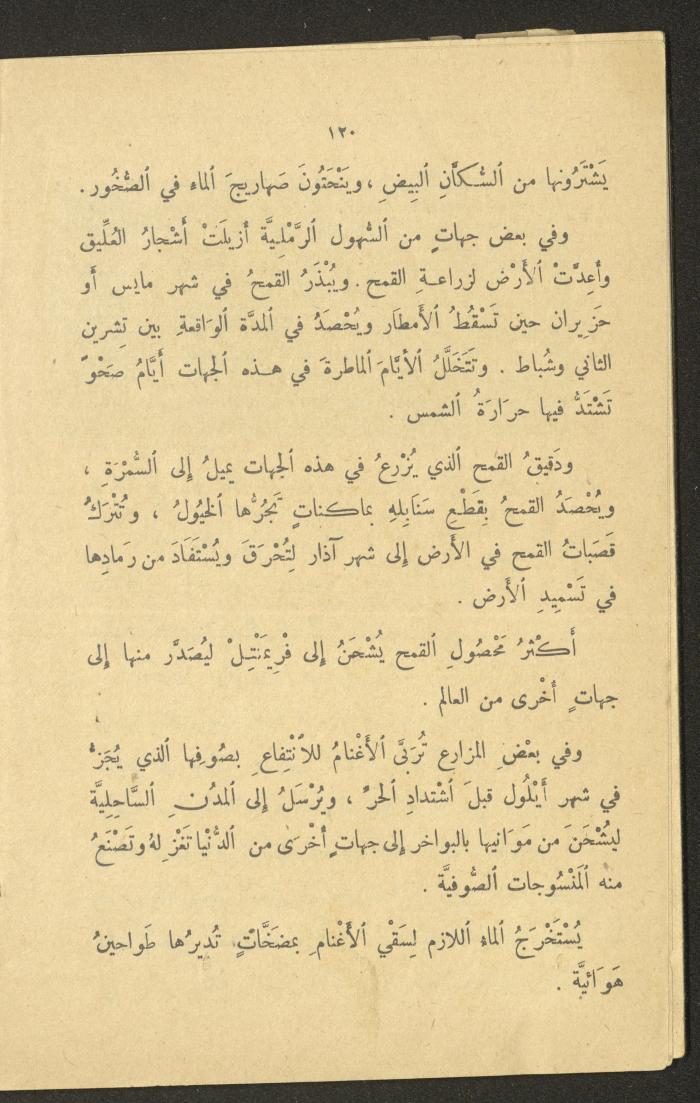 ١٢٠
يَشْتَرُونها من ٱلسُّكَّانِ ٱلبِيضِ ، ويَنْحَتُونَ صَهاريجَ ٱلماء في ٱلصُّخُور .
وفي بعض جهاتٍ من ٱلسُّهول ٱلرَّمْلِيَّة أُزيلَتْ أَشْجارُ العُلِّيق
وأُعِدَّتْ ٱلأَرْض لزراعةِ القمح . ويُبْذَرُ القمحُ في شهر مايس أَو
حَزيران حين تَسْقُطُ ٱلأَمطار ويُحْصَدُ في المدَّة ٱلوَاقعةِ بين تِشرين
الثاني وشُباط . وتَتَخَلَّلُ ٱلأَيَّامَ ٱلماطرةَ في هذه ٱلجهات أَيَّامُ صَحْوٍ
تَشْتَدُّ فيها حرَارَةُ ٱلشمس .
ودَقيقُ القمح ٱلذي يُزْرعُ في هذه ٱلجهات يميلُ إلى ٱلسُّمْرَةِ ،
ويُحْصَدُ القمحُ بِقَطْعِ سَنَابِلِهِ بماكناتٍ تَجُرُّها ٱلخيُولُ ، وتُتْرَكُ
قَصَباتُ القمح في الأَرض إلى شهر آذار لِتُحْرَقَ ويُسْتَفَادَ من رَمادِها
في تَسْمِيدِ ٱلأَرض .
أَكْثرُ مَحْصُولِ ٱلقمح يُشْحَنُ إلى فْرِيمَنْتِلْ ليُصَدَّر منها إلى
جهاتٍ أُخْرى من العالم .
وفي بعْضِ المزارع تُرَبَّى ٱلأَغْنامُ للاٱنْتِفاعِ بصُوفِها ٱلذي يُجَزُّ
في شهر أَيْلُول قبلَ ٱشْتدادِ ٱلحرِّ ، ويُرْسَلُ إلى ٱلمدُنِ ٱلسَّاحِلِيَّة
ليُشْحَنَ من مَوَانيها بالبواخر إلى جهاتٍ أُخْرَى من ٱلدُّنْيا تَغْزِلهُ وتَصْنَعُ
منه ٱلمَنْسُوجات ٱلصُّوفيَّة .
يُسْتَخْرَجُ ٱلماء ٱللازم لِسَقْي ٱلأَغْنامِ بمضَخَّاتٍ تُديرُها طَواحينُ
هَوَائيَّة .